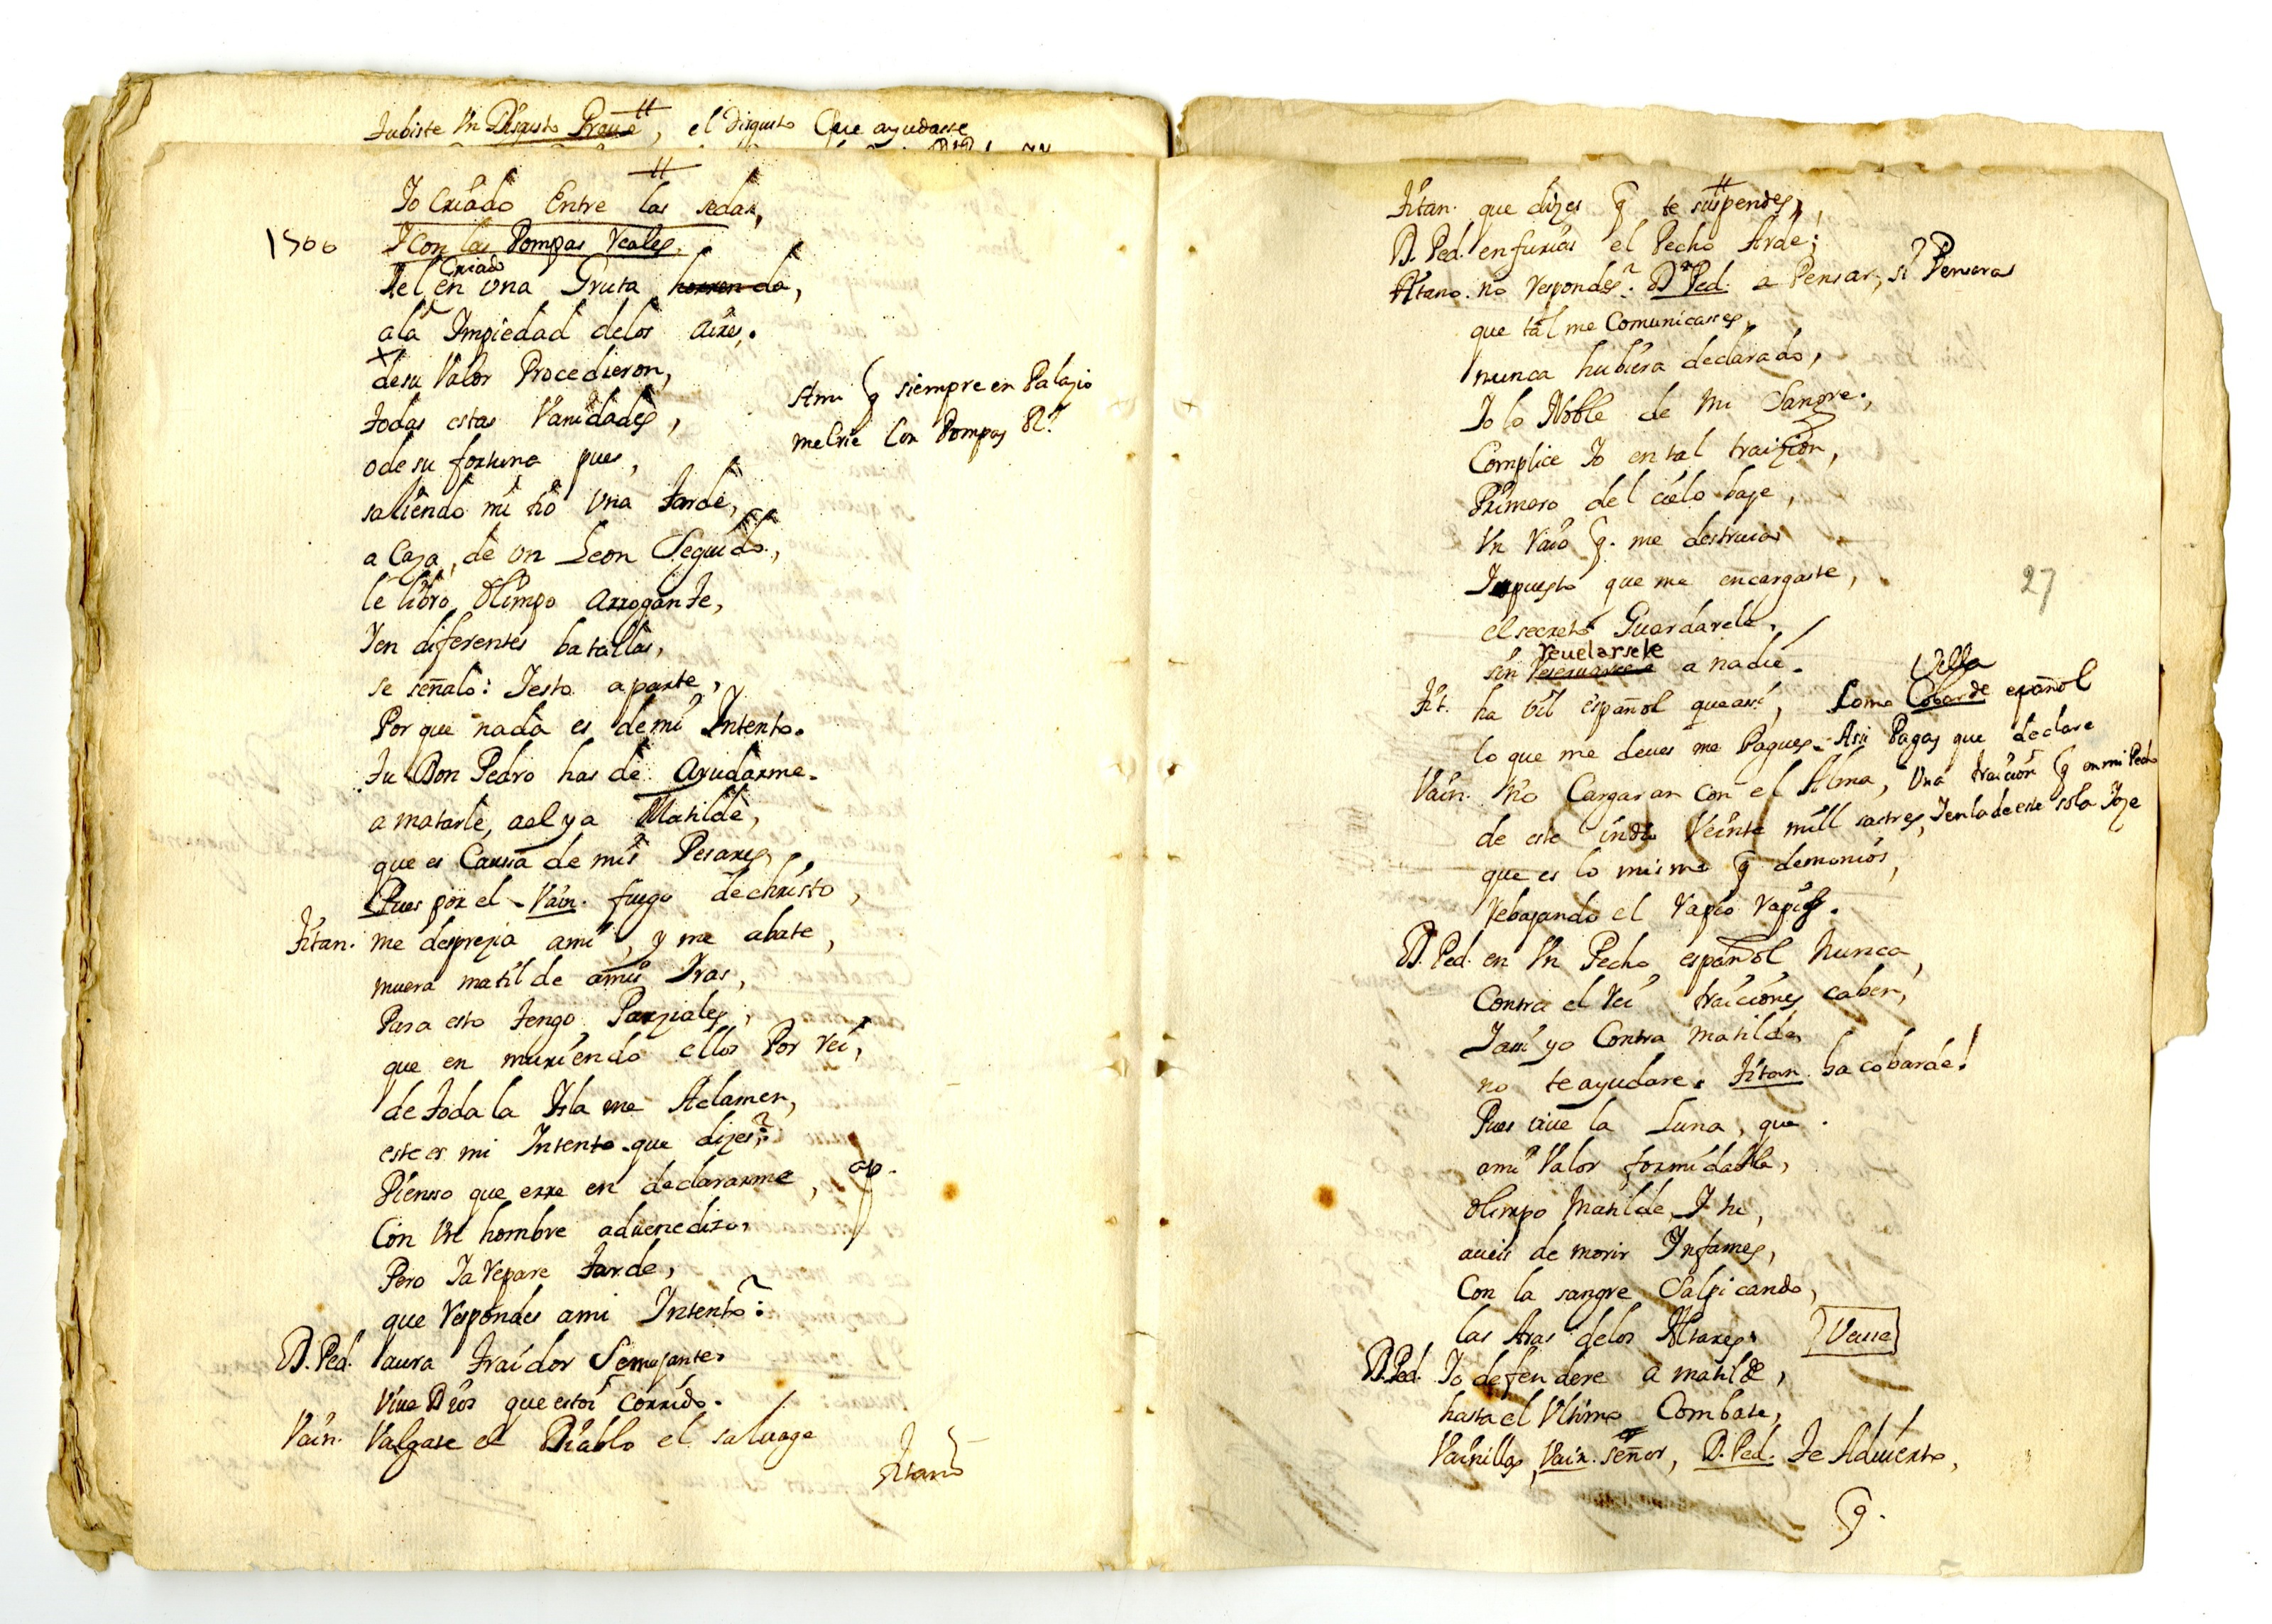 tubiste Vn Disgusto Graue, el disgusto Que ayudasse
Io Criado Entre las sedas,
1500
I con las Pompas reales.
I el Criado en vna Gruta horrenda,
a la Impiedad delos aires.
desu Valor Procedieron,
todas estas Vanidades,
o de su fortuna pues,
Ami q siempre en Palazio
me Crie Con Pompas Rs
saliendo mi tio vna tarde,
a Caza, de vn Leon Seguido,
le libro Olimpo arrogante,
I en diferentes batallas,
se señalo: I esto aparte,
Por que nada es de mi Intento.
tu Don Pedro has de Ayudarme.
a matarle, a el y a Matilde,
que es Caussa de mis Pesares,
Pues por el Vain. fuego de christo,
Titan. me desprezia ami, y me abate,
muera matilde amis Iras,
Para esto tengo Parziales,
que en muriendo ellos Por rei,
de toda la Isla me Aclamen,
este es mi Intento que dizes?
Pienso que erre en declararme, ap.
Con vn hombre aduenedizo,
Pero Ia repare tarde,
que respondes ami Intento?
D. Ped. aura traidor Semejante
Viue Dios que estoi corrido.
Vain. Valgate el Diablo el saluage
Titano
Titan. que dizes q te suspendes,
D. Ped. en furias el Pecho Arde;
Titano. no respondes? Dn Ped. a Pensar, si Pensaras
que tal me Comunicasses,
nunca hubiera declarado,
Io lo Noble de mi Sangre,
Complice Io en tal traizion,
Primero del cielo baje,
Vn raio q. me destruia
27
I puesto que me encargaste,
el secreto Guardarele,
reuelarsele
sin a nadie.
Vella
Tit. ha vil español que assi, Como Cobarde español
lo que me deues me Pagues. Assi Pagas que declare
Vain. No Cargaran con el Alma, Vna traicion q en mi Pecho
de este indio Veinte mill sastres, I en la de este sola Ioze
que es lo mismo q demonios,
rebajando el rapio rapis.
D. Ped. en Vn Pecho español Nunca,
Contra el rei traiciones caben,
I assi yo Contra matilde
no te ayudare. Titan ha cobarde!
Pues viue la Luna, que
ami Valor formidable,
Olimpo Matilde, I tu,
aueis de morir Infames,
Con la sangre Salpicando,
las Aras delos Altares. Vasse
D. Ped. Io defendere a matilde,
hasta el Vltimo Combate,
Vainillas, Vain. señor, D. Ped. te Aduierto,
q.